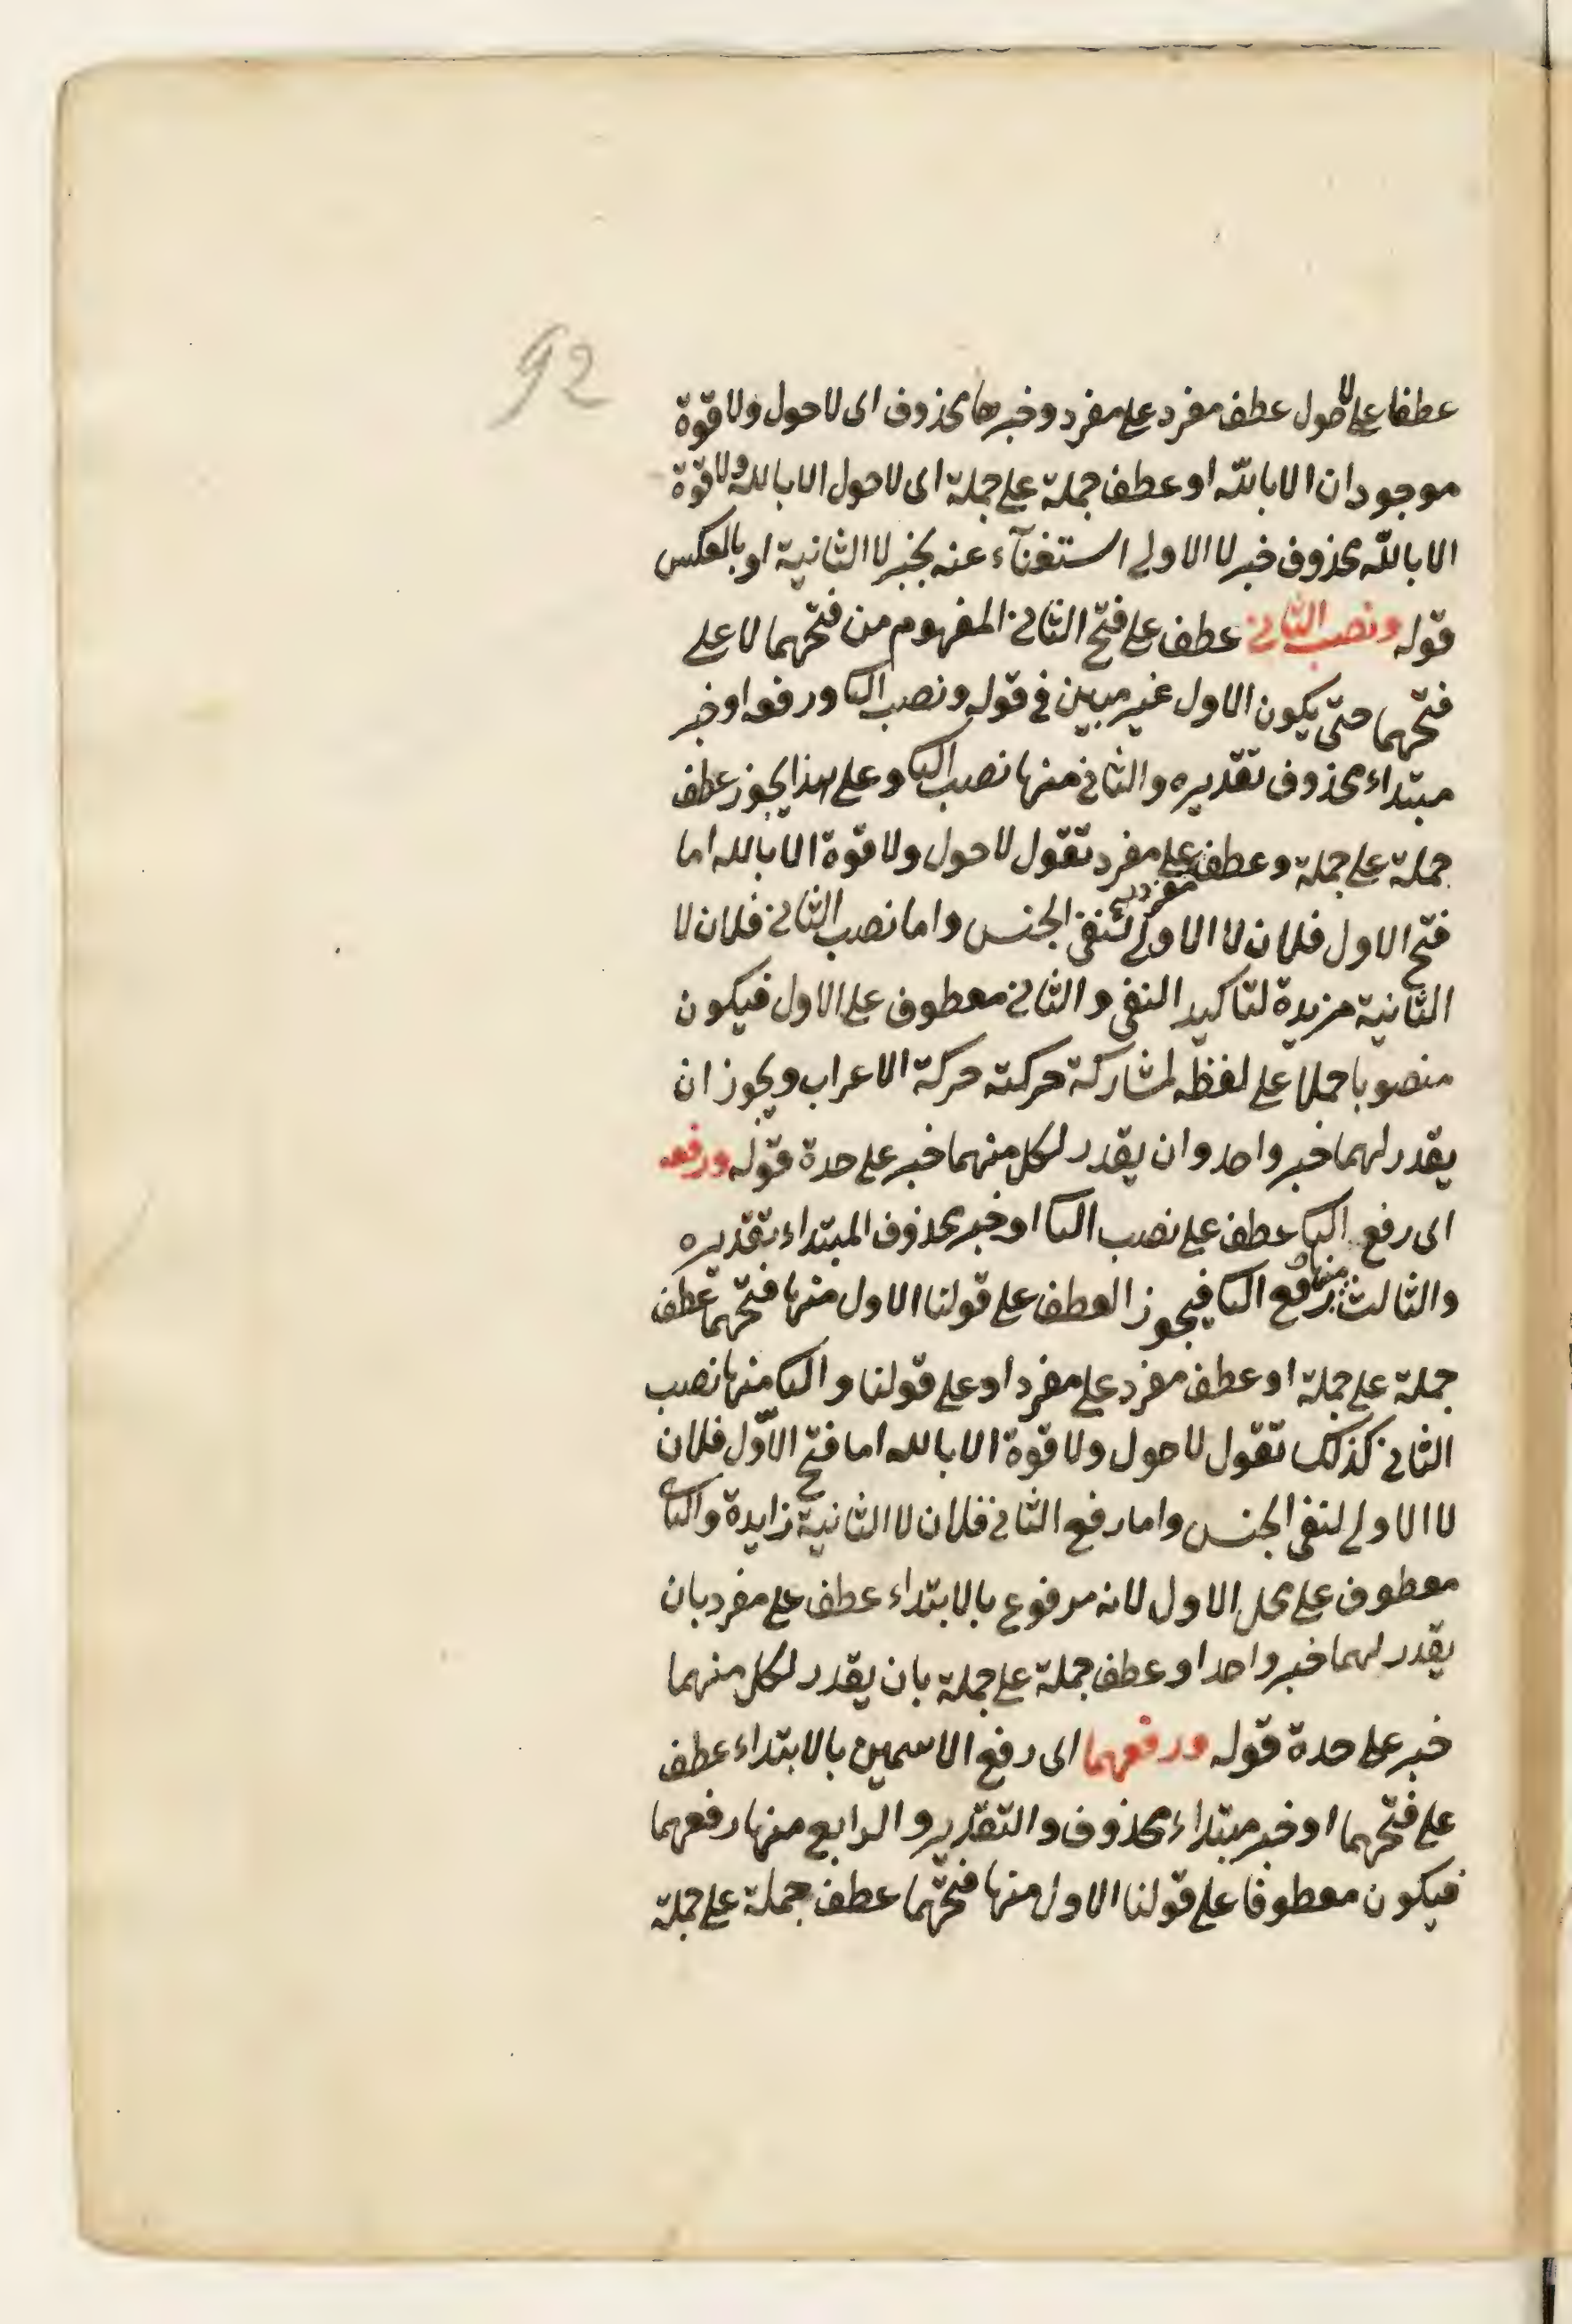 92
عطفا على لا حول عطف مفرد على مفرد وخبرهما محذوف اى لا حول ولا قوة
موجودان الا بالله او عطف جملة على جملة اى لا حول الا بالله ولا قوة
الا بالله محذوف خبر لا الاولى استغنآء عنه بخبر لا الثانية او بالعكس
قوله ونصب الثانى عطف على فتح الثانى المفهوم من فتحهما لا على
فتحهما حتى يكون الاول غير مبين فى قوله ونصب الثا ورفعه او خبر
مبتداء محذوف تقديره والثانى منها نصب الثا وعلى هذا يجوز عطف
جملة على جملة وعطف مفرد على مفرد تقول لا حول ولا قوة الا بالله اما
فتح الاول فلان لا الاولى لنفى الجنس واما نصب الثانى فلان لا
الثانية مزيدة لتاكيد النفى والثانى معطوف على الاول فيكون
منصوبا حملا على لفظه لمشاركة حركته حركة الاعراب ويجوز ان
يقدر لهما خبر واحد وان يقدر لكل منهما خبر على حدة قوله ورفعه
اى رفع الثا عطف على نصب الثا او خبر محذوف المبتداء تقديره
والثالث منها رفع الثا فيجوز العطف على قولنا الاول منها فتحهما عطف
جملة على جملة او عطف مفرد على مفرد او على قولنا والثا منها نصب
الثانى كذلك تقول لا حول ولا قوة الا بالله اما فتح الاوّل فلان
لا الاولى لنفى الجنس واما رفع الثانى فلان لا الثانية زايدة والثا
معطوف على محل الاول لانه مرفوع بالابتداء عطف على مفرد بان
يقدر لهما خبر واحد او عطف جملة على جملة بان يقدر لكل منهما
خبر على حدة قوله ورفعهما اى رفع الاسمين بالابتداء عطف
على فتحهما او خبر مبتداء محذوف والتقدير والرابع منها رفعهما
فيكون معطوفا على قولنا الاول منها فتحهما عطف جملة على جملة